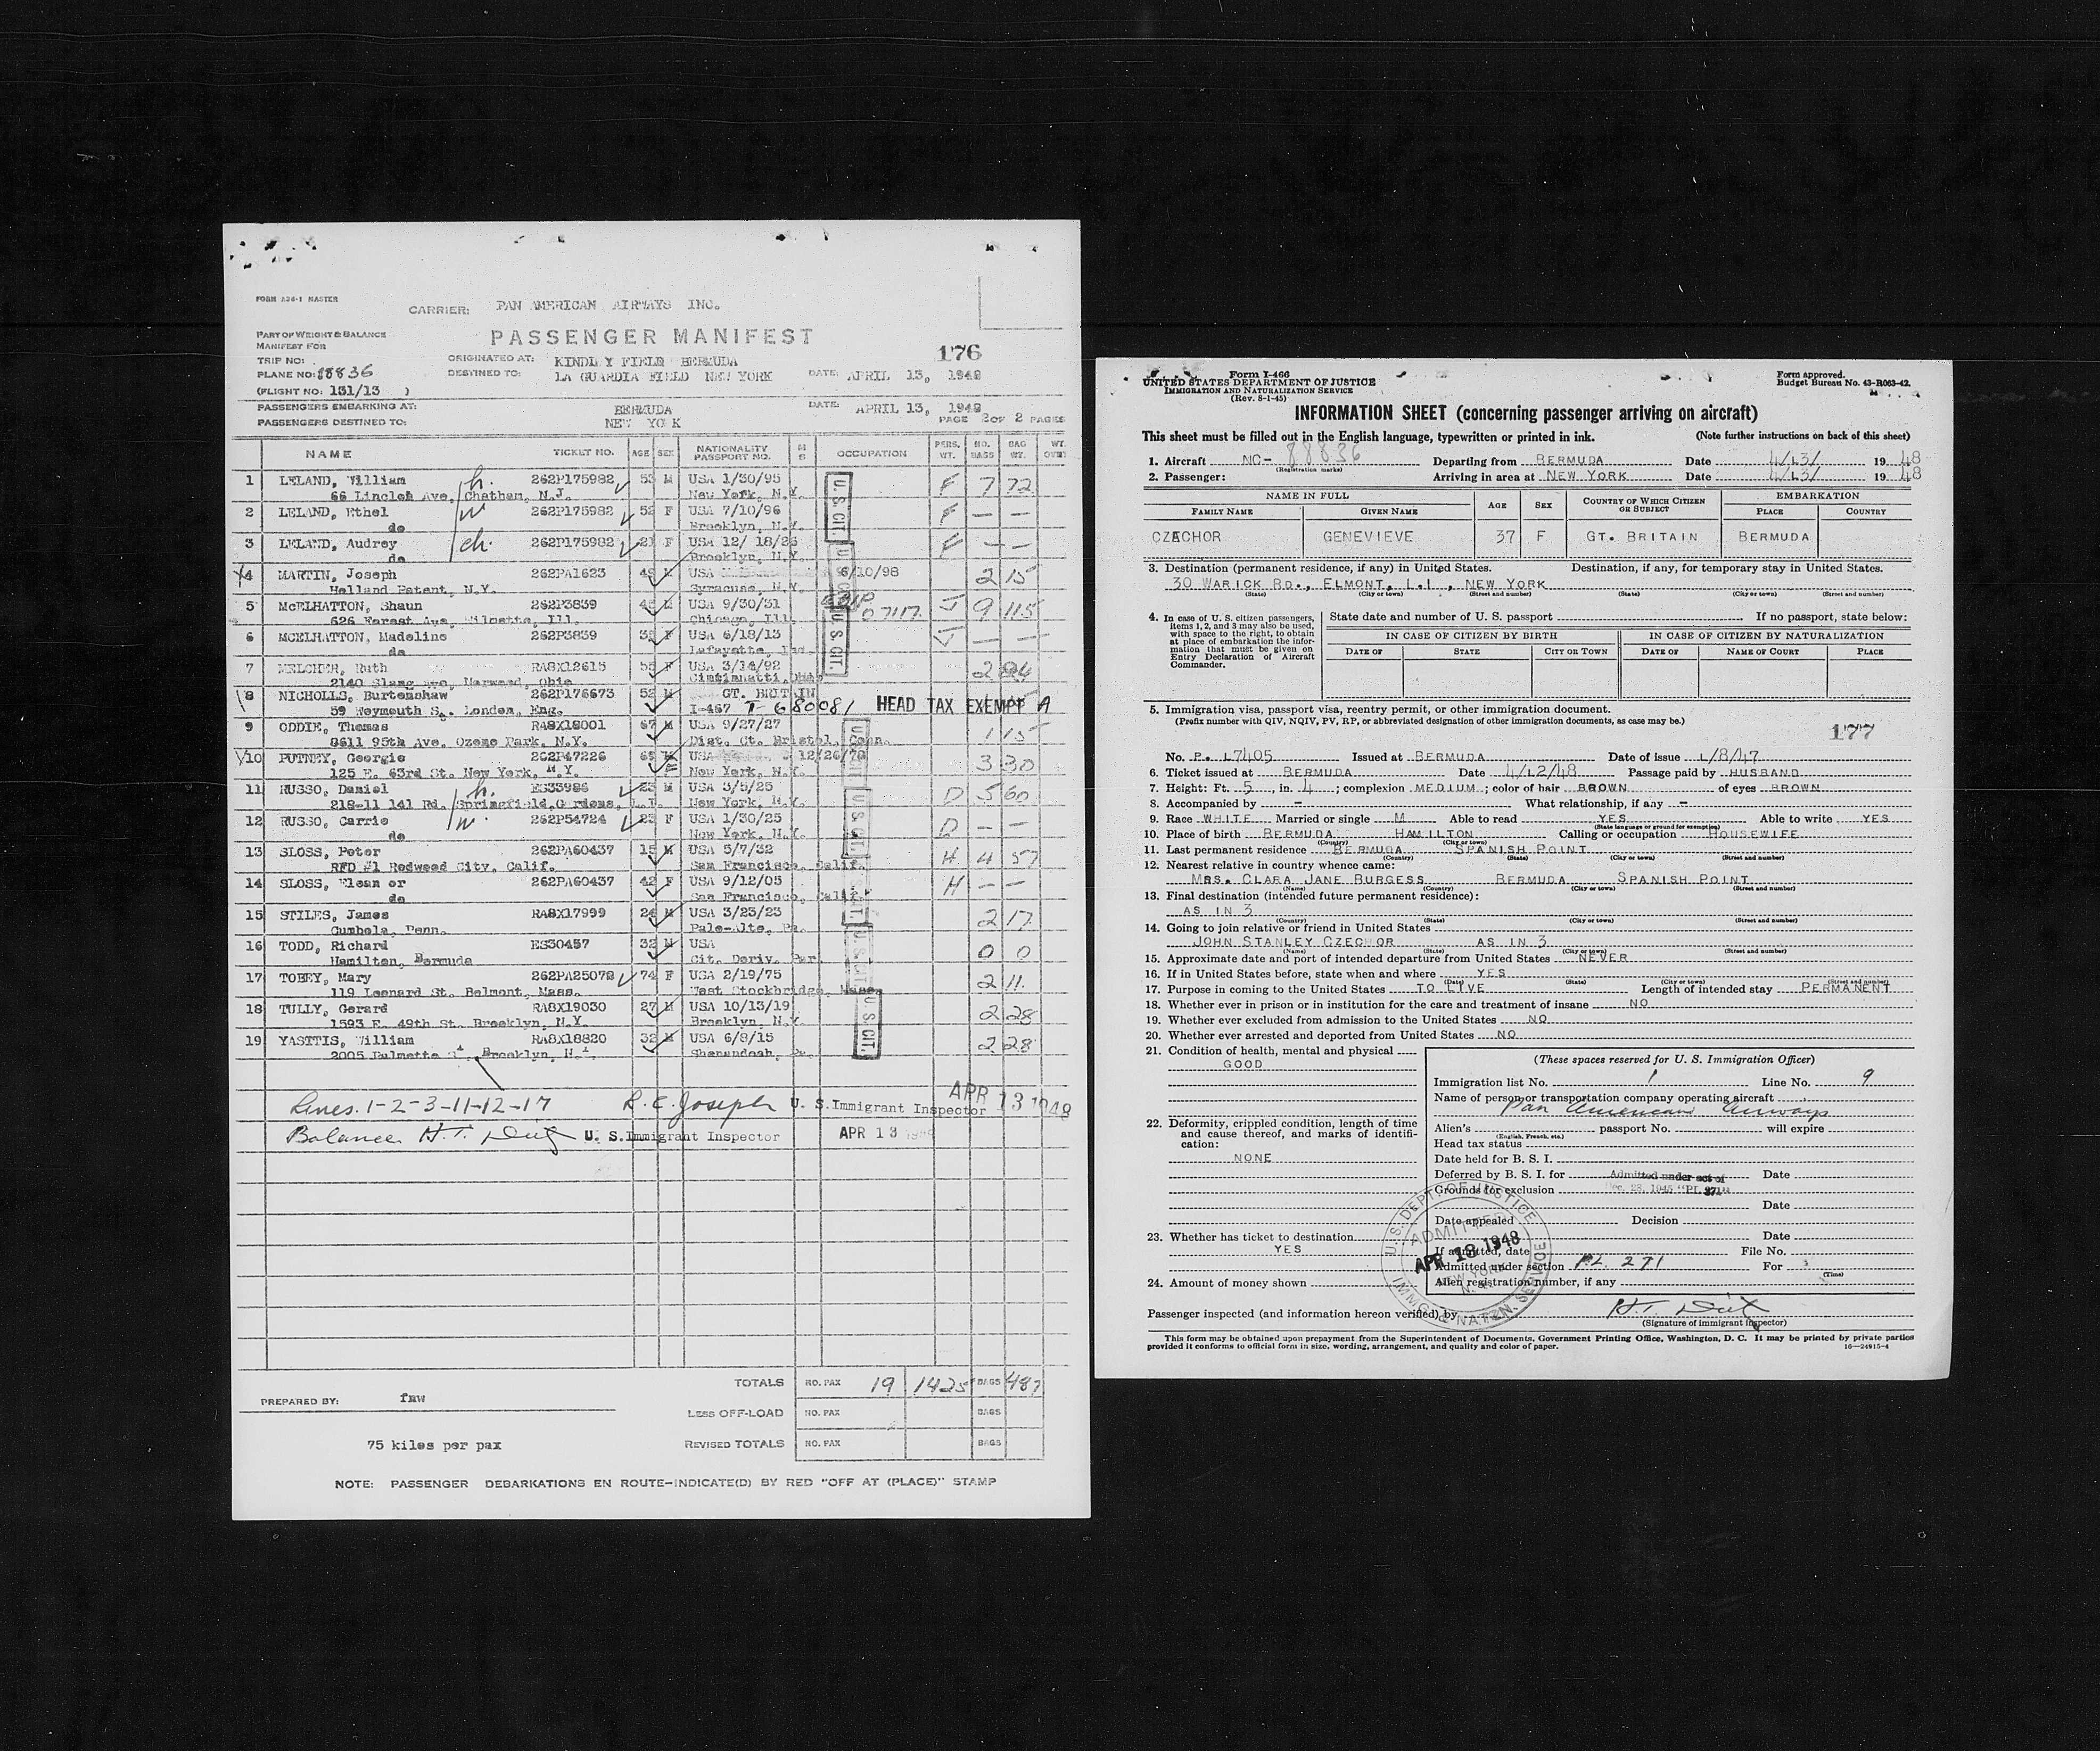 FORM A34-1 MASTER
CARRIER: PAN AMERICAN AIRWAYS INC.
PASSENGER MANIFEST
PART OF WEIGHT & BALANCE
MANIFEST FOR
TRIP NO:
PLANE NO: 88836
(FLIGHT NO: 131/13 )
ORIGINATED AT: KINDLEY FIELD BERMUDA
DESTINED TO: LA GUARDIA FIELD NEW YORK
DATE: APRIL 13, 1948
176
PASSENGERS EMBARKING AT: BERMUDA DATE: APRIL 13, 1948
PASSENGERS DESTINED TO: NEW YORK PAGE 2 OF 2 PAGES
NAME TICKET NO. AGE SEX NATIONALITY PASSPORT NO. M S OCCUPATION PERS. WT. NO. BAGS BAG WT. WT. OVER
1 LELAND, William h. 262P175982 53 M USA 1/30/95 F 7 72
66 Lincoln Ave, Chatham, N.J. New York, N.Y.
2 LELAND, Ethel w 262P175982 52 F USA 7/10/96 F — —
do Brooklyn, N.Y.
3 LELAND, Audrey ch. 262P175982 21 F USA 12/ 18/26 F — —
do Brooklyn, N.Y.
4 MARTIN, Joseph 262PA1623 49 M USA 6/10/98 2 15
Holland Patent, N.Y. Syracuse, N.Y.
5 McELHATTON, Shaun 262P3839 45 M USA 9/30/31 07117 J 9 115
626 Forest Ave, Wilmette, Ill. Chicago, Ill.
6 MCELHATTON, Madeline 262P3839 35 F USA 6/18/13 J — —
do Lafayette, Ind.
7 MELCHER, Ruth RA8X12615 55 F USA 3/14/92 2 24
2140 Slang Ave, Norwood, Ohio Cintianatti, Ohio
8 NICHOLLS, Burtonshaw 262P176673 52 M GT. BRITAIN
59 Weymouth S. London, Eng. I-467 I-680081 HEAD TAX EXEMPT A
9 ODDIE, Thomas RA8X18001 67 M USA 9/27/27 1 15
8611 95th Ave. Ozone Park, N.Y. Dist. Ct. Bristol, Conn.
10 PUTNEY, Georgie 262P47226 69 USA 12/26/78 3 30
125 E. 63rd St. New York, N.Y. New York, N.Y.
11 RUSSO, Daniel h. ES33986 23 M USA 3/5/25 D 5 60
218-11 141 Rd. Springfield, Gardens, L.I. New York, N.Y.
12 RUSSO, Carrie w. 262P54724 23 F USA 1/30/25 D — —
do New York, N.Y.
13 SLOSS, Peter 262PA60437 15 M USA 5/7/32 H 4 57
RFD #1 Redwood City, Calif. San Francisco, Calif.
14 SLOSS, Elean or 262PA60437 42 F USA 9/12/05 H — —
do San Francisco, Calif.
15 STILES, James RA8X17999 24 M USA 3/23/23 2 17
Cumbola, Penn. Palo-Alto, Pa.
16 TODD, Richard ES30457 32 M USA 0 0
Hamilton, Bermuda Cit. Deriv. Par
17 TOBEY, Mary 262PA25078 74 F USA 2/19/75 2 11.
119 Leonard St. Belmont, Mass. West Stockbridge, Mass.
18 TULLY, Gerard RA8X19030 27 M USA 10/13/19 2 28
1593 E. 49th St. Brooklyn, N.Y. Brooklyn, N.Y.
19 YASITIS, William RA8X18820 32 M USA 6/8/15 2 28
2005 Palmetto St, Brooklyn, N.Y. Shenandoah, Pa.
U.S. CIT.
Lines. 1-2-3-11-12-17 R.C. Joseph U. S. Immigrant Inspector APR 13 1948
Balance H.T. U. S. Immigrant Inspector APR 13 1948
TOTALS NO. PAX 19 1425 BAGS 487
PREPARED BY: faw
LESS OFF-LOAD NO. PAX BAGS
75 kilos per pax REVISED TOTALS NO. PAX BAGS
NOTE: PASSENGER DEBARKATIONS EN ROUTE-INDICATE(D) BY RED "OFF AT (PLACE)" STAMP
Form I-466
UNITED STATES DEPARTMENT OF JUSTICE
IMMIGRATION AND NATURALIZATION SERVICE
(Rev. 8-1-45)
Form approved.
Budget Bureau No. 43-R063-42.
INFORMATION SHEET (concerning passenger arriving on aircraft)
This sheet must be filled out in the English language, typewritten or printed in ink. (Note further instructions on back of this sheet)
1. Aircraft NC- 88836 Departing from BERMUDA Date 4/L3/ 19 48
(Registration marks)
2. Passenger: Arriving in area at NEW YORK Date 4/L3/ 19 48
NAME IN FULL AGE SEX COUNTRY OF WHICH CITIZEN OR SUBJECT EMBARKATION
FAMILY NAME GIVEN NAME PLACE COUNTRY
CZECHOR GENEVIEVE 37 F GT. BRITAIN BERMUDA
3. Destination (permanent residence, if any) in United States. Destination, if any, for temporary stay in United States.
30 WARICK RD., ELMONT, L.I., NEW YORK
(State) (City or town) (Street and number) (State) (City or town) (Street and number)
4. In case of U. S. citizen passengers, items 1, 2, and 3 may also be used, with space to the right, to obtain at place of embarkation the information that must be given on Entry Declaration of Aircraft Commander.
State date and number of U. S. passport If no passport, state below:
IN CASE OF CITIZEN BY BIRTH IN CASE OF CITIZEN BY NATURALIZATION
DATE OF STATE CITY OR TOWN DATE OF NAME OF COURT PLACE
5. Immigration visa, passport visa, reentry permit, or other immigration document.
(Prefix number with QIV, NQIV, PV, RP, or abbreviated designation of other immigration documents, as case may be.)
177
No. P. L7405 Issued at BERMUDA Date of issue L/8/47
6. Ticket issued at BERMUDA Date 4/L2/48 Passage paid by HUSBAND
7. Height: Ft. 5, in. 4; complexion MEDIUM; color of hair BROWN of eyes BROWN
8. Accompanied by – What relationship, if any –
9. Race WHITE Married or single M Able to read YES Able to write YES
(State language or ground for exemption)
10. Place of birth BERMUDA HAMILTON Calling or occupation HOUSEWIFE
(Country) (City or town)
11. Last permanent residence BERMUDA SPANISH POINT
(Country) (State) (City or town) (Street and number)
12. Nearest relative in country whence came:
MRS. CLARA JANE BURGESS BERMUDA SPANISH POINT
(Name) (Country) (City or town) (Street and number)
13. Final destination (intended future permanent residence):
AS IN 3
(Country) (State) (City or town) (Street and number)
14. Going to join relative or friend in United States
JOHN STANLEY CZECHOR AS IN 3
(Name) (State) (City or town) (Street and number)
15. Approximate date and port of intended departure from United States NEVER
16. If in United States before, state when and where YES
(Date) (State) (City or town) (Street and number)
17. Purpose in coming to the United States TO LIVE Length of intended stay PERMANENT
18. Whether ever in prison or in institution for the care and treatment of insane NO
19. Whether ever excluded from admission to the United States NO
20. Whether ever arrested and deported from United States NO
21. Condition of health, mental and physical
GOOD
22. Deformity, crippled condition, length of time and cause thereof, and marks of identification:
NONE
23. Whether has ticket to destination
YES
24. Amount of money shown
(These spaces reserved for U. S. Immigration Officer)
Immigration list No. 1 Line No. 9
Name of person or transportation company operating aircraft
Pan American Airways
Alien's passport No. will expire
(English, French, etc.)
Head tax status
Date held for B. S. I.
Deferred by B. S. I. for Date
Admitted under act of
Dec. 28, 1945 "PL 271"
Grounds for exclusion
Date
Date appealed Decision
Date
If admitted, date File No.
Admitted under section P.L. 271 For
(Time)
Alien registration number, if any
U. S. DEPT. OF JUSTICE
ADMITTED
APR 13 1948
NEW YORK
N.Y.
IMMIG. & NATZN. SERVICE
Passenger inspected (and information hereon verified) by H.T.
(Signature of immigrant inspector)
This form may be obtained upon prepayment from the Superintendent of Documents, Government Printing Office, Washington, D. C. It may be printed by private parties
provided it conforms to official form in size, wording, arrangement, and quality and color of paper. 16—24915-4